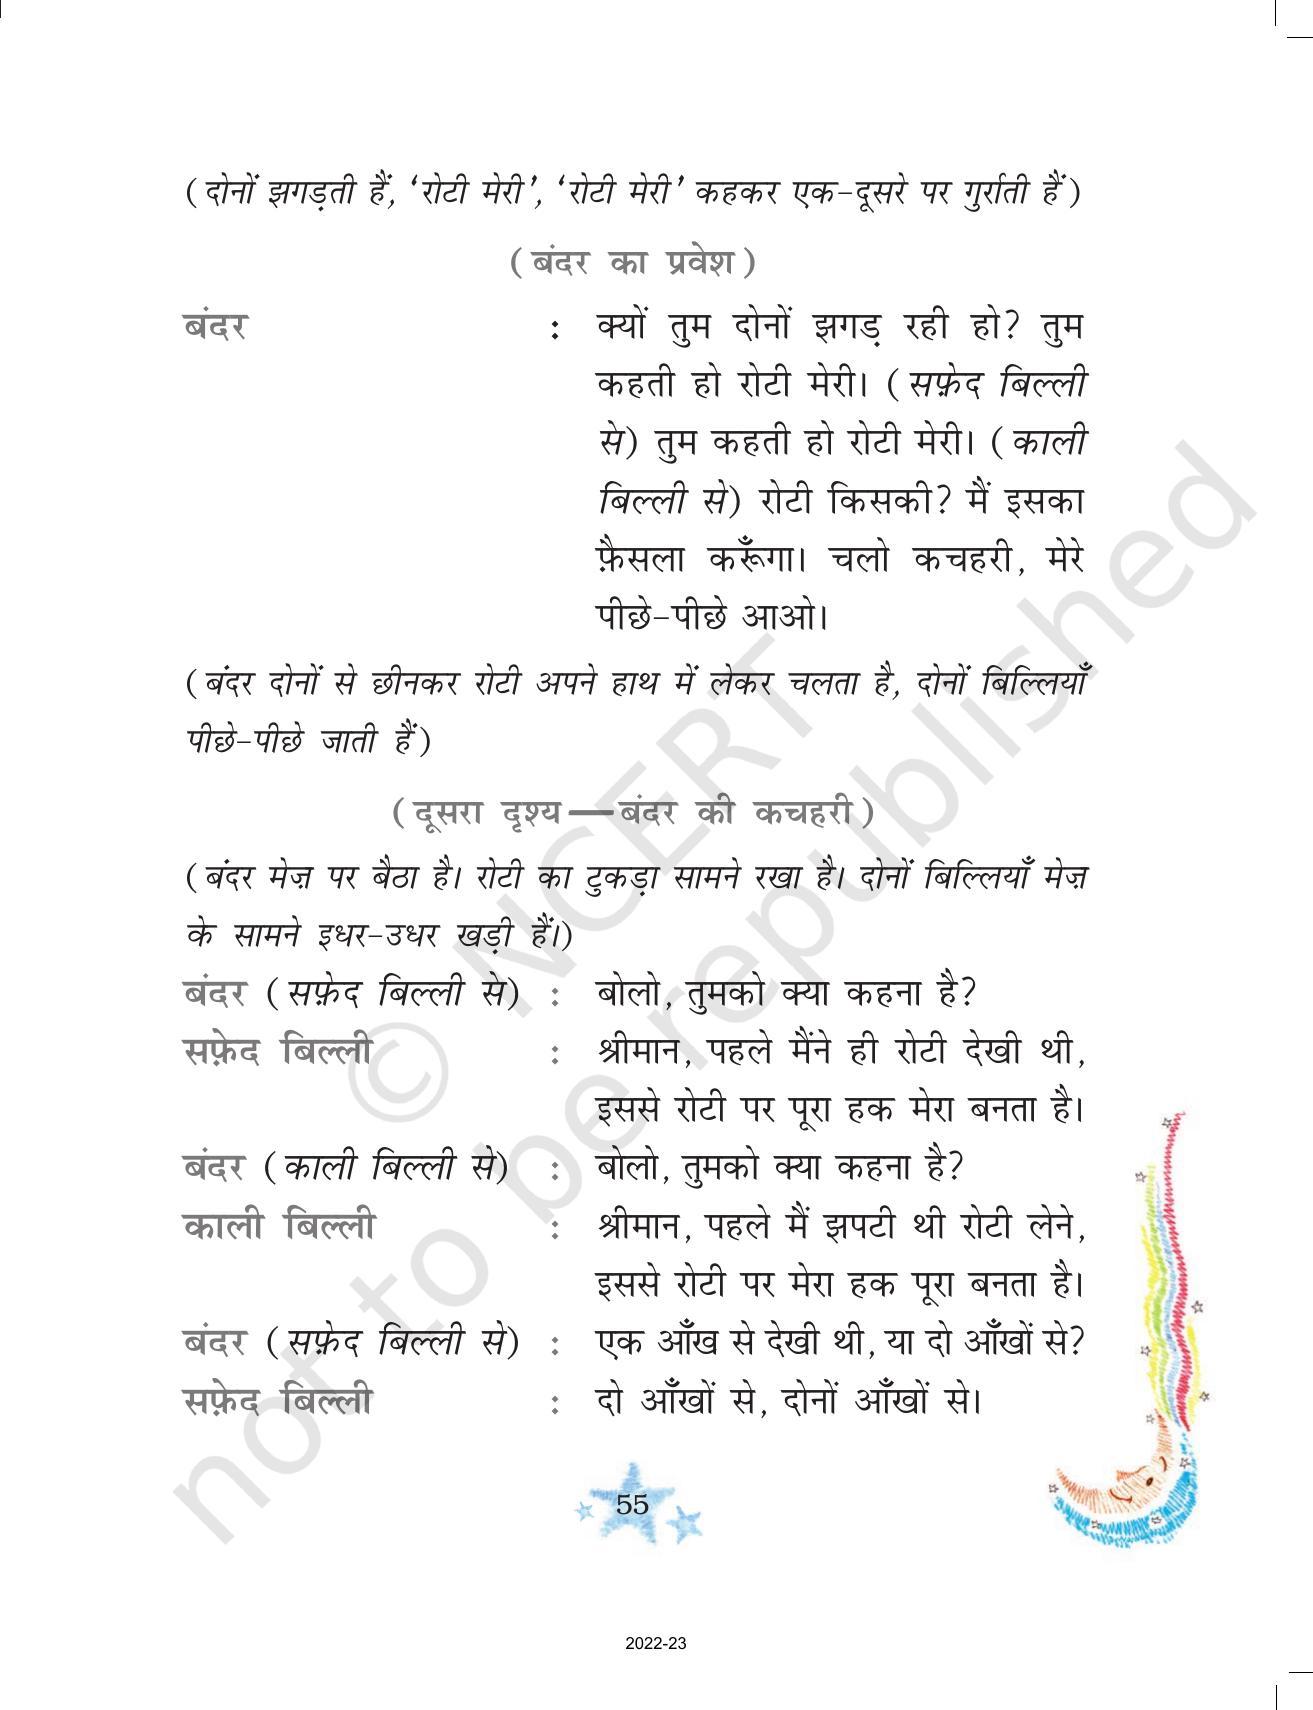 (दोनों झगड़ती हैं, ‘रोटी मेरी’, ‘रोटी मेरी’ कहकर एक-दूसरे पर गुर्राती हैं)
(बंदर का प्रवेश)
बंदर : क्यों तुम दोनों झगड़ रही हो? तुम
कहती हो रोटी मेरी। (सफ़ेद बिल्ली
से) तुम कहती हो रोटी मेरी। (काली
बिल्ली से) रोटी किसकी? मैं इसका
फ़ैसला करूँगा। चलो कचहरी, मेरे
पीछे-पीछे आओ।
(बंदर दोनों से छीनकर रोटी अपने हाथ में लेकर चलता है, दोनों बिल्लियाँ
पीछे-पीछे जाती हैं)
(दूसरा दृश्य—बंदर की कचहरी)
(बंदर मेज़ पर बैठा है। रोटी का टुकड़ा सामने रखा है। दोनों बिल्लियाँ मेज़
के सामने इधर-उधर खड़ी हैं।)
बंदर (सफ़ेद बिल्ली से) : बोलो, तुमको क्या कहना है?
सफ़ेद बिल्ली : श्रीमान, पहले मैंने ही रोटी देखी थी,
इससे रोटी पर पूरा हक मेरा बनता है।
बंदर (काली बिल्ली से) : बोलो, तुमको क्या कहना है?
काली बिल्ली : श्रीमान, पहले मैं झपटी थी रोटी लेने,
इससे रोटी पर मेरा हक पूरा बनता है।
बंदर (सफ़ेद बिल्ली से) : एक आँख से देखी थी, या दो आँखों से?
सफ़ेद बिल्ली : दो आँखों से, दोनों आँखों से।
55
2022-23
© NCERT
not to be republished